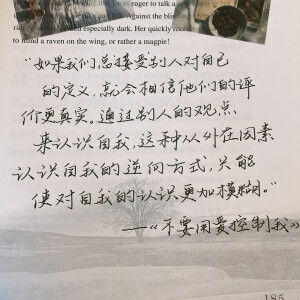 eager to talk a
Against the blin
ked especially dark. Her quickly rece
to mind a raven on the wing, or rather a magpie!
“如果我们总接受别人对自己
的定义,就会相信他们的评
价更真实。通过别人的观点
来认识自我,这种从外在因素
认识自我的逆向方式,只能
使对自我的认识更加模糊。”
——《不要用爱控制我》
185